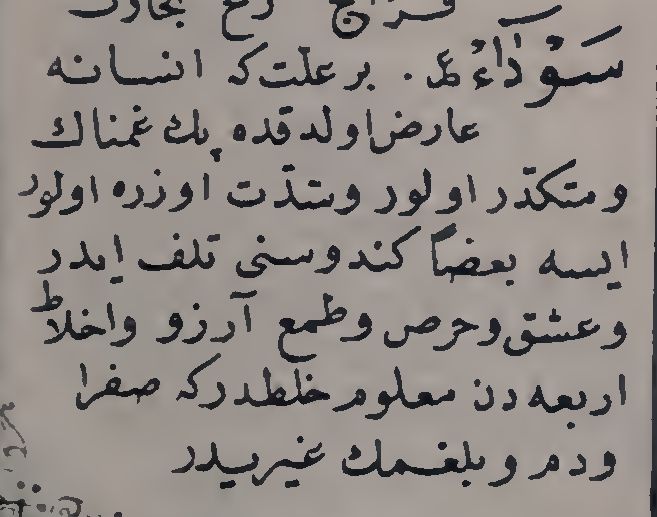 سَوْدَاءُ ع. بر علت که انسانه
عارض اولدقده پك غمناك
و متکدّر اولور وشدّت اوزره اولور
ایسه بعضاً کندوسنی تلف ایدر
وعشق وحرص وطمع آرزو واخلاط
اربعه دن معلوم خلطدرکه صفرا
ودم و بلغمك غیریدر